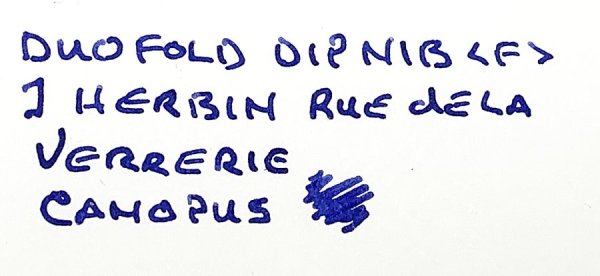 DUOFOLD DIP NIB <F>
J HERBIN RUE dE LA
VERRERIE
CANOPUS